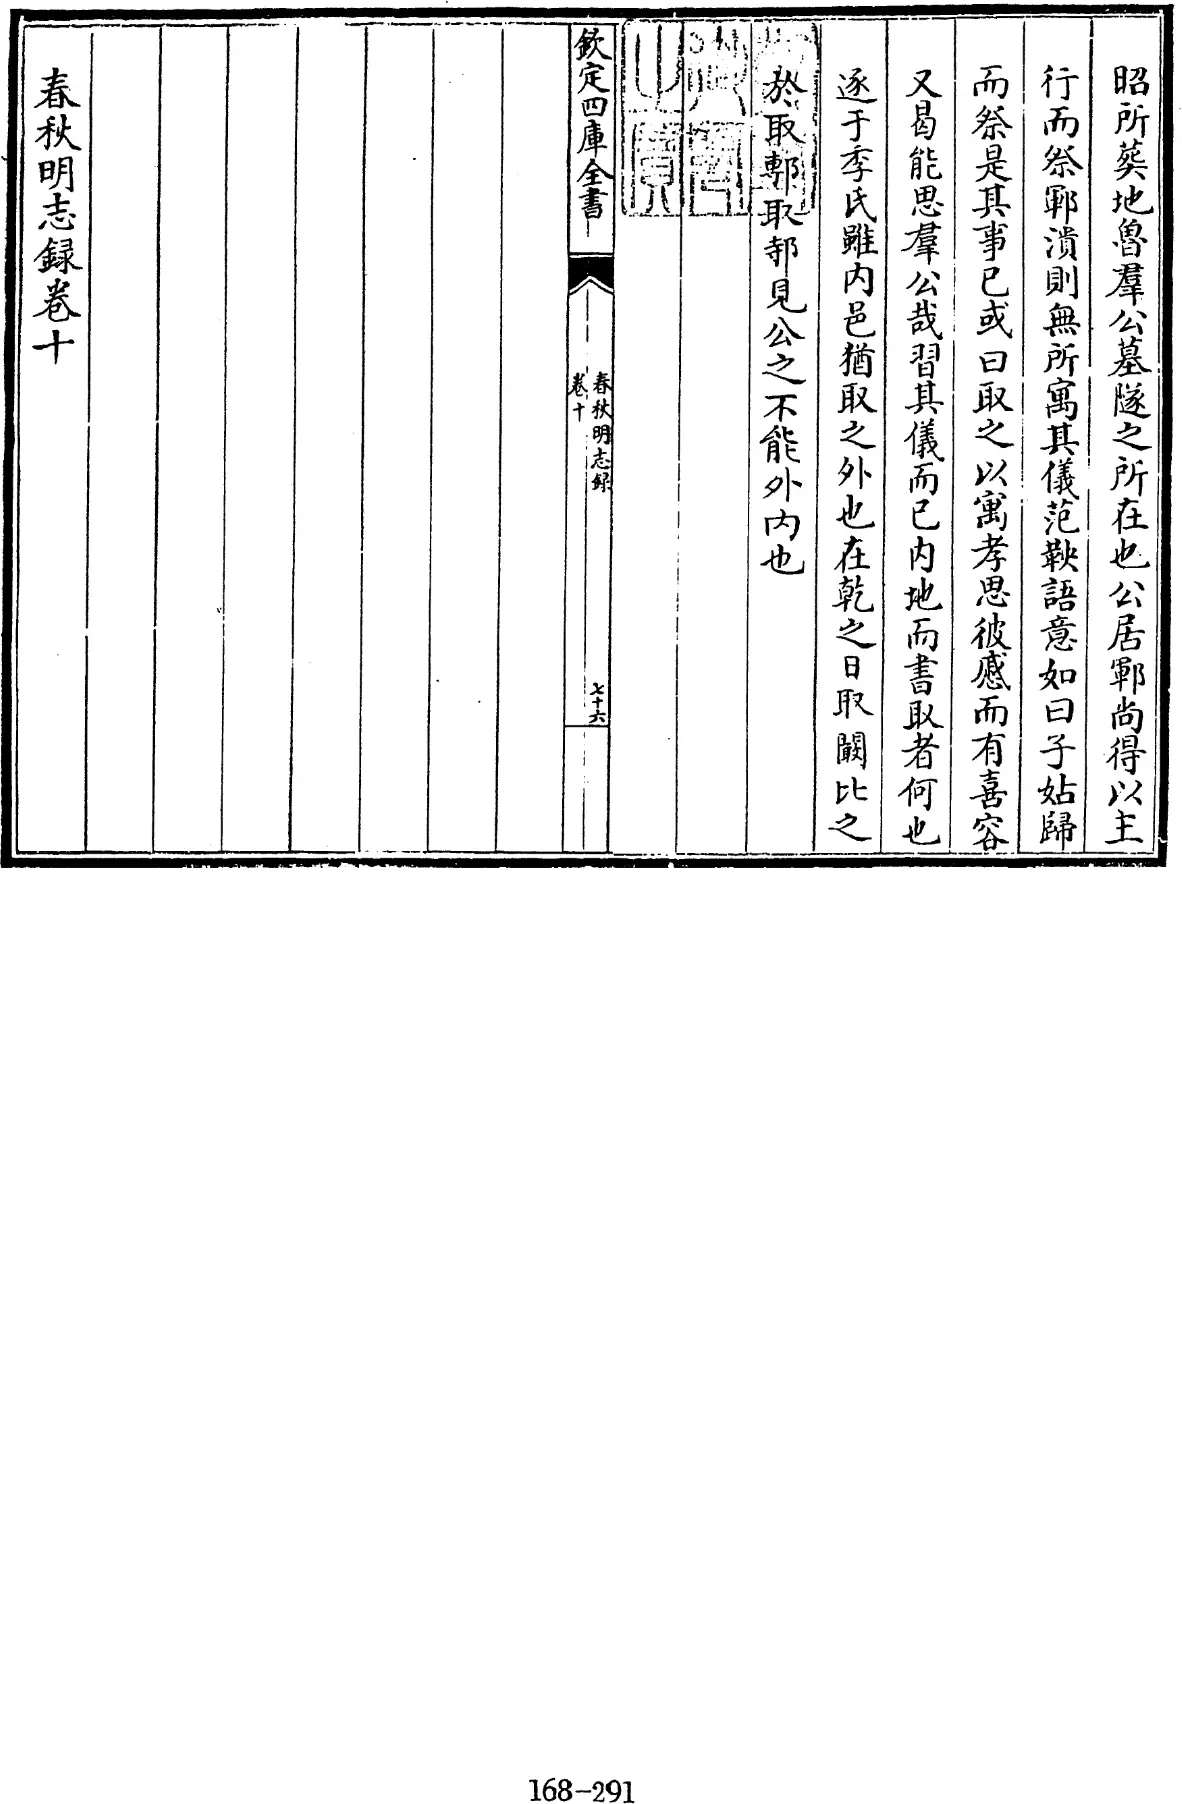 昭所葬地魯羣公墓隧之所在也公居鄆尚得以主
行而祭鄆潰則無所寓其儀范鞅語意如曰子姑歸
而祭是其事已或曰取之以寓孝思彼慼而有喜容
又曷能思羣公哉習其儀而已内地而書取者何也
逐于季氏雖内邑猶取之外也在乾之日取闞比之
於取鄟取邿見公之不能外内也
欽定四庫全書
春秋明志録
卷十
七十六
春秋明志録卷十
168-291